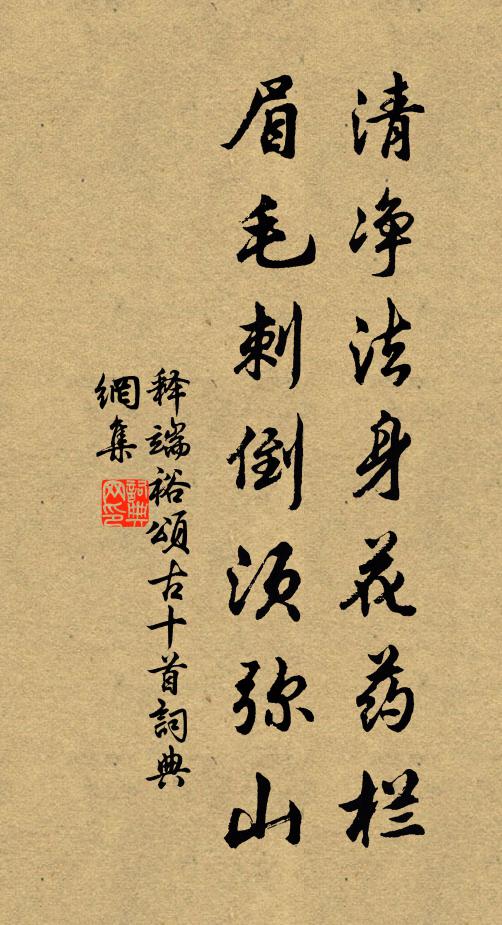 清净法身花药栏
眉毛刺倒须弥山
释端裕頌古十首詞典
網集
詞典網印